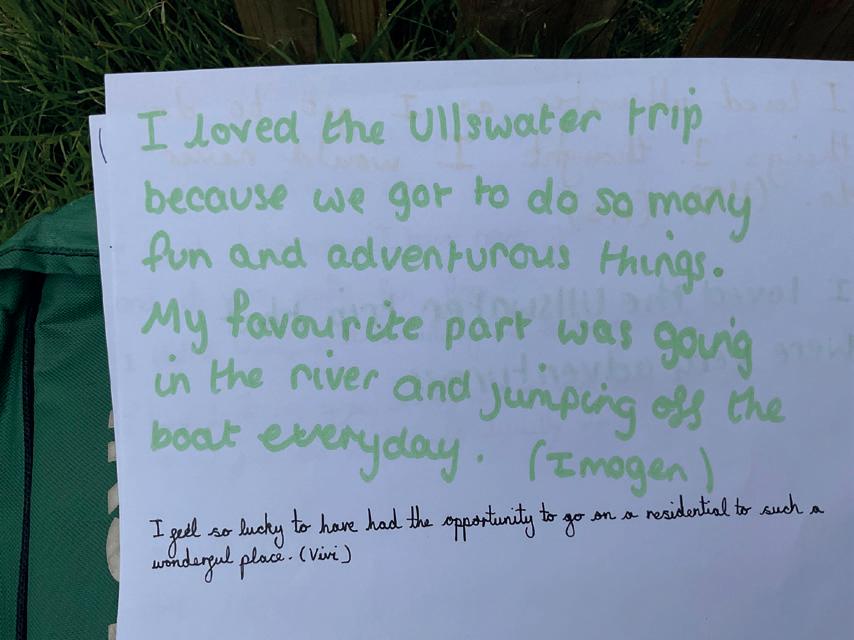 I loved the Ullswater trip
because we got to do so many
fun and adventurous things.
My favourite part was going
in the river and jumping off the
boat everyday. (Imogen)
I feel so lucky to have had the opportunity to go on a residential to such a
wonderful place. (Vivi)